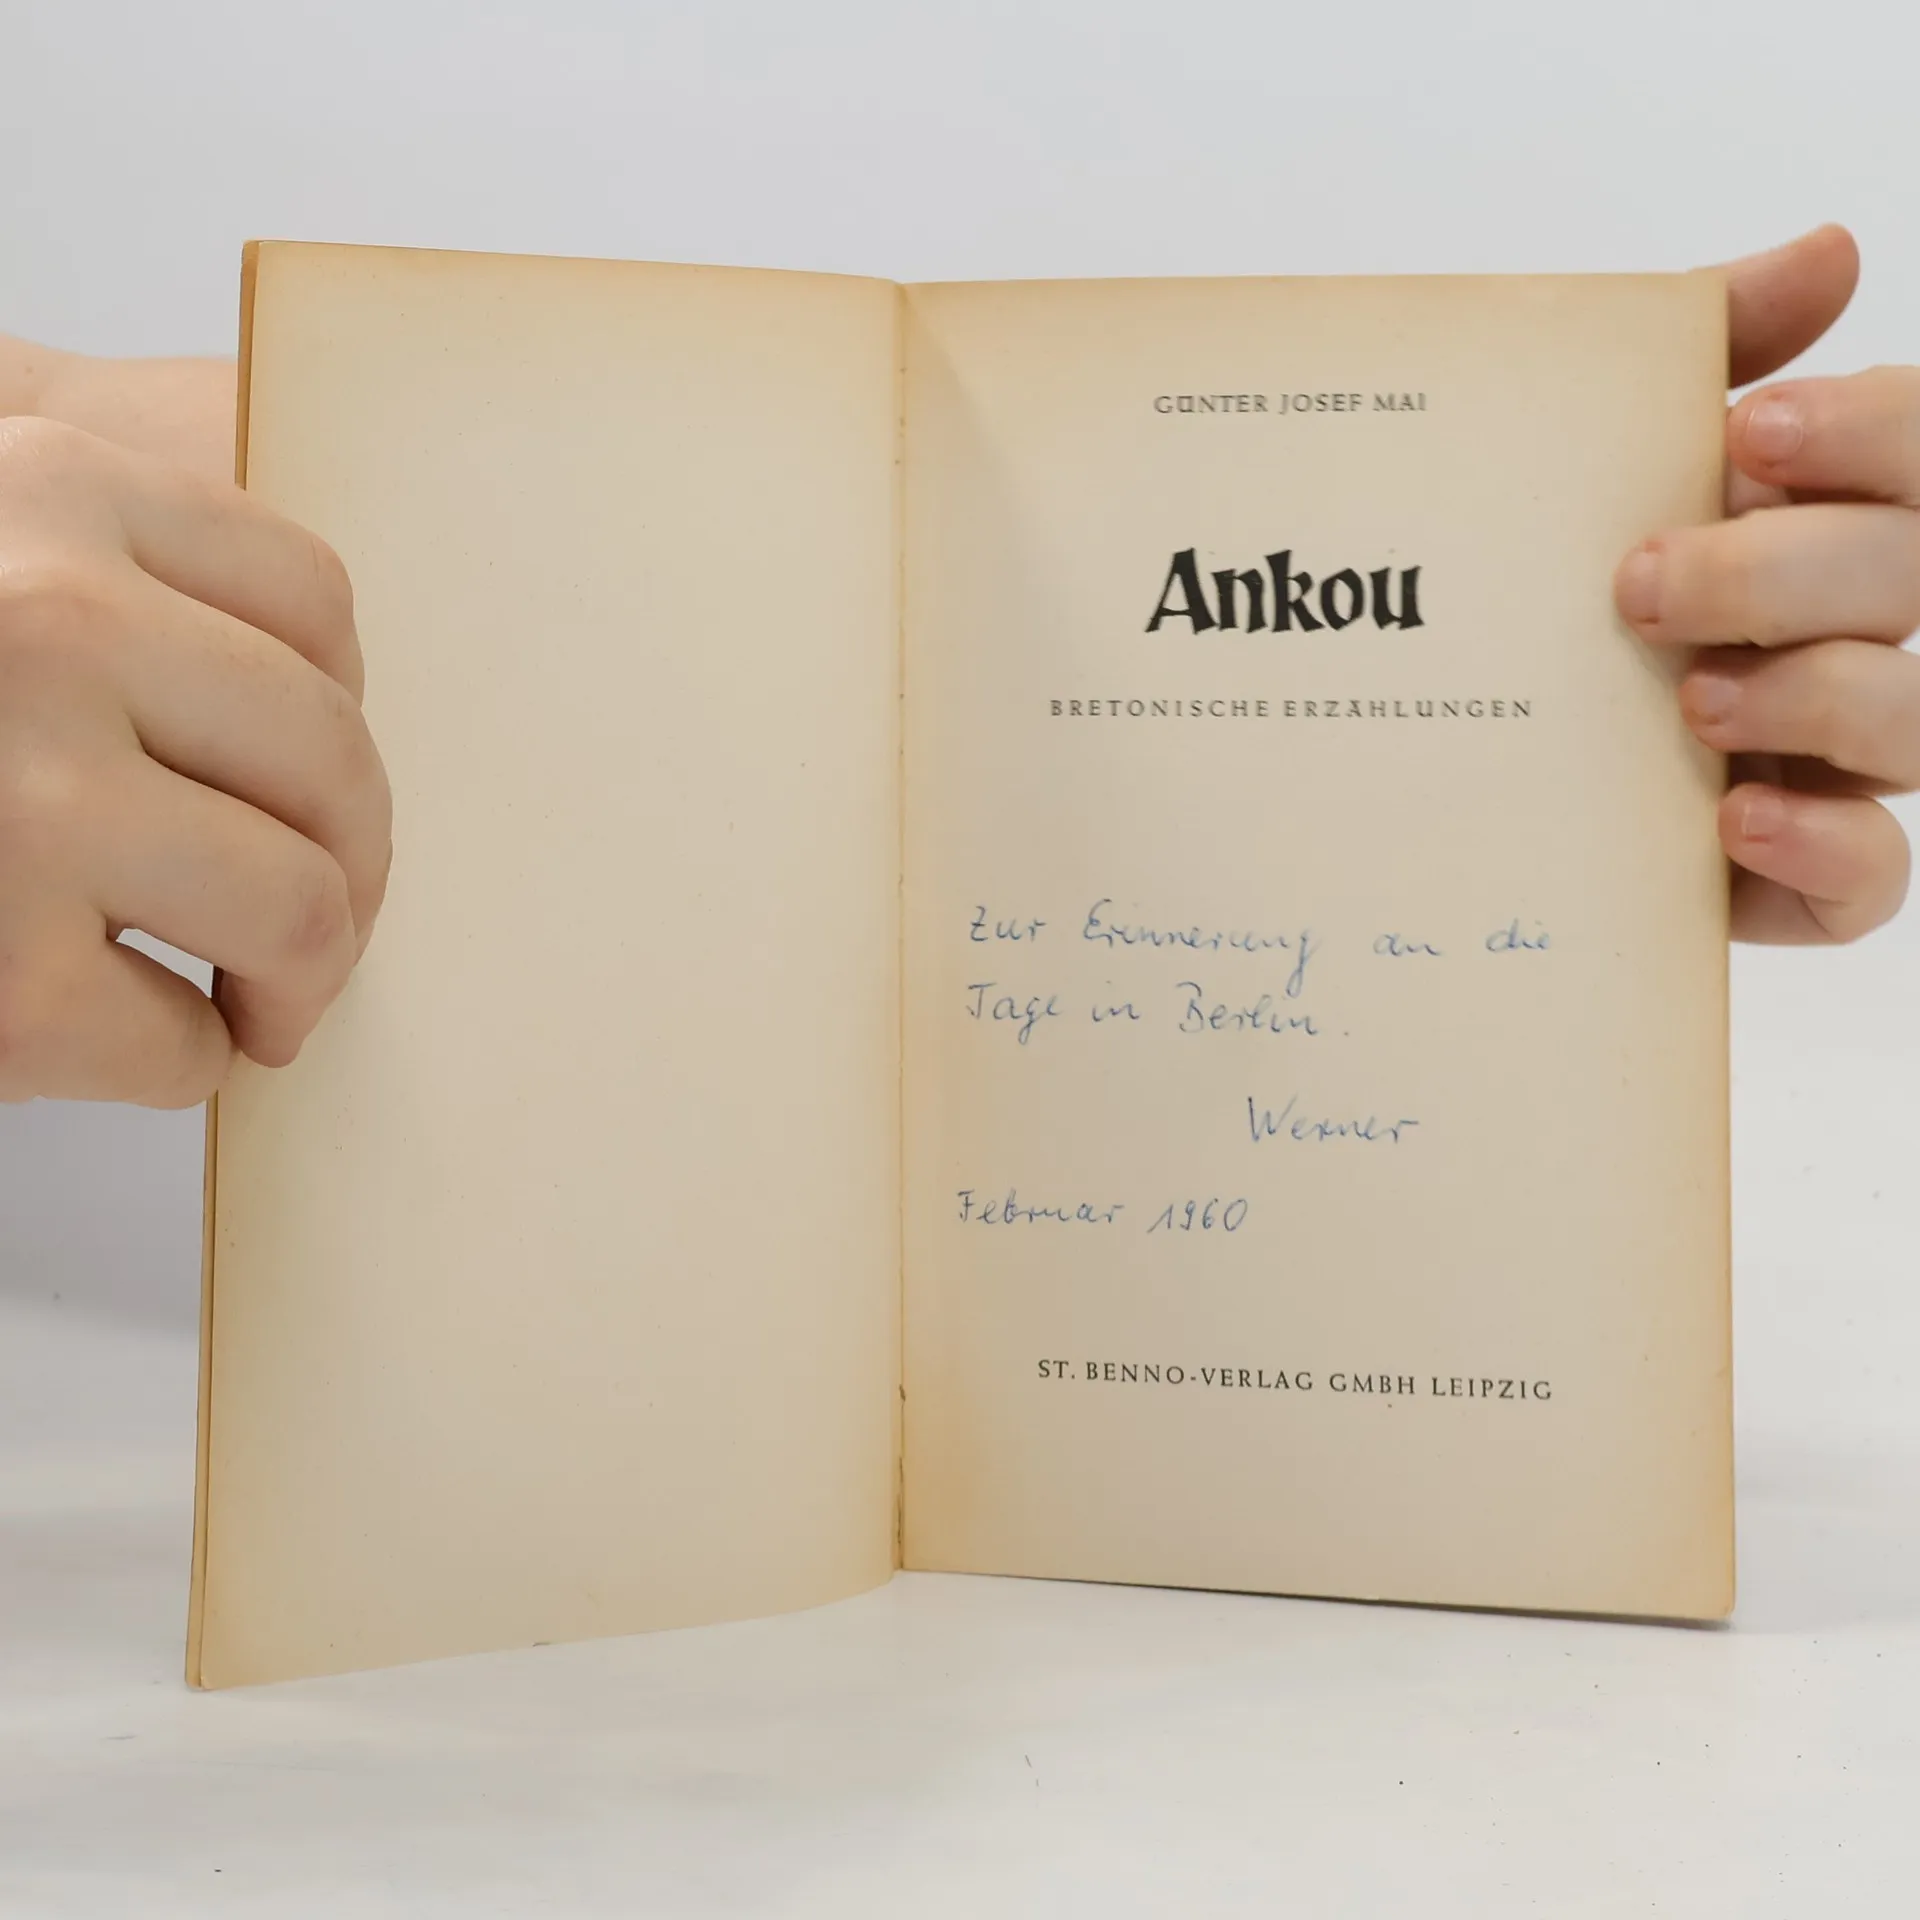 GÜNTER JOSEF MAI
Ankou
BRETONISCHE ERZÄHLUNGEN
Zur Erinnerung an die
Tage in Berlin.
Werner
Februar 1960
ST. BENNO-VERLAG GMBH LEIPZIG